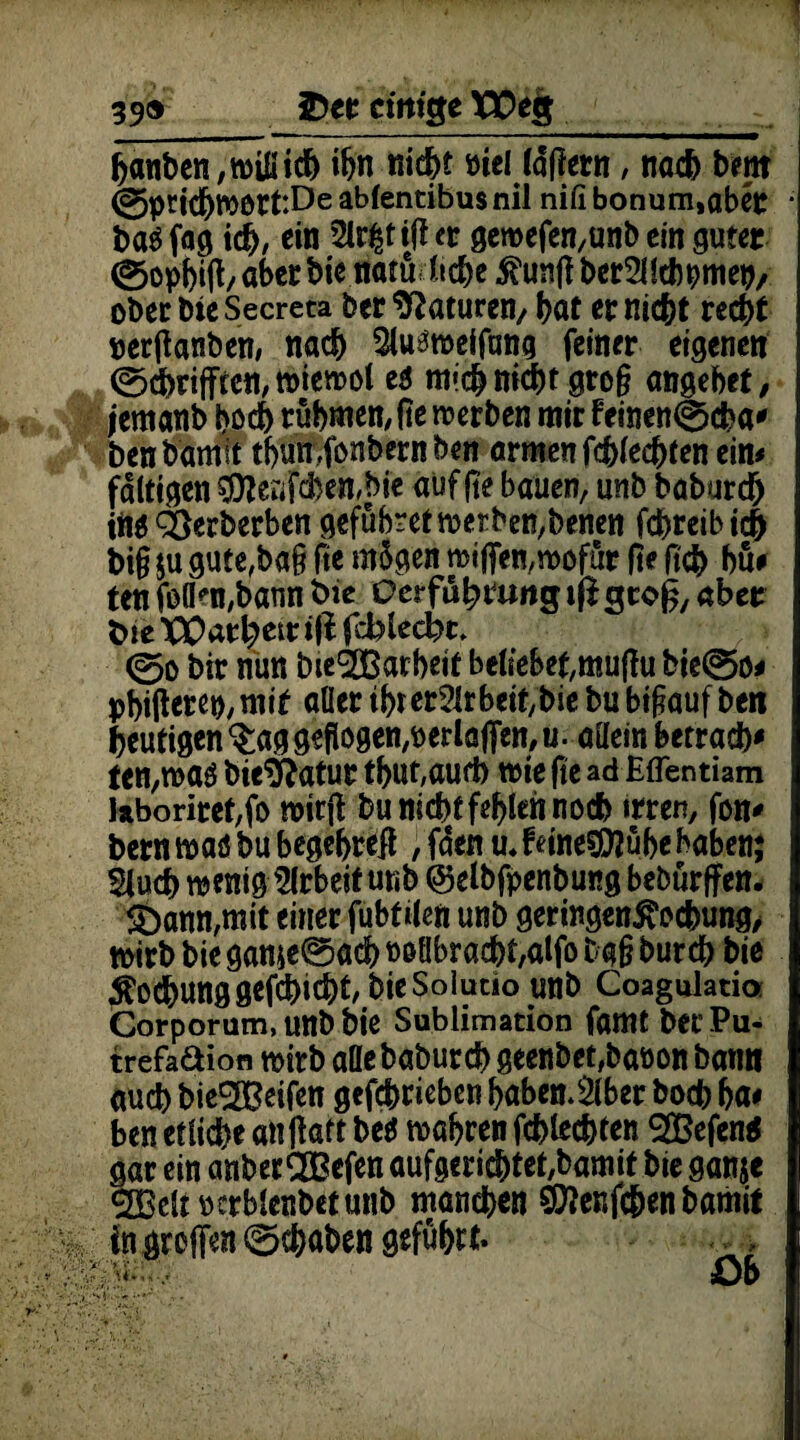 390 Der einige Weg
handen, will ich ihn nicht viel låstern, nach dem
Sprichwort: De absentibus nil nisi bonum, aber
das sag ich, ein Artzt ist er gewesen, und ein guter
Sophist, aber die natůrliche Kunst der Alchymey,
oder die Secreta der Naturen, hat er nicht recht
verstanden, nach Ausweisung seiner eigenen
Schrifften, wiewol es mich nicht groß angehet,
jemand hoch růhmen, sie werden mir keinen Scha-
den damit thun, sondern den armen schlechten ein-
fåltigen Menschen, die auf sie bauen, und dadurch
ins Verderben gefůhret werden, denen schreib ich
diß zu gute, daß sie můgen wissen, wofůr sie sich hů-
ten sollen, dann die Verfůhrung ist groß, aber
die Warheit ist schlecht.
So dir nun die Warheit beliebet, must du die So-
phisterey, mit aller ihrer Arbeit, die du biß auf den
heutigen Tag gepflogen, verlassen, u. allein betrach-
ten, was die Natur thut, auch wie sie ad Essentiam
laboriret, so wirst du nicht fehlen noch irren, son-
dern was du begehrest, såen u. keine Můhe haben;
Auch wenig Arbeit und Geldspendung bedůrffen.
Dann, mit einer subtilen und geringen Kochung,
wird die gantze Sach vollbracht, also daß durch die
Kochung geschicht, die Solutio und Coagulatio
Corporum, und die Sublimation samt der Pu-
trefaction wird alle dadurch geendet, davon dann
auch die Weisen geschrieben haben. Aber doch ha-
ben etliche anstatt des wahren schlechten Wesens
gar ein ander Wesen aufgerichtet, damit die ganze
Welt verblendet und manchen Menschen damit
in grossen Schaden gefůhrt.
Ob